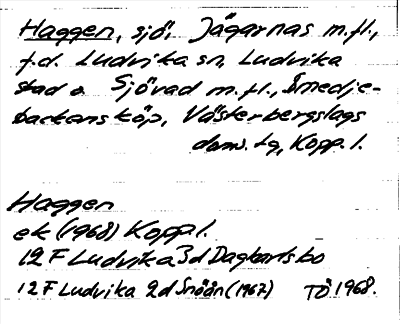 Haggen, sjö. Jägarnas m.fl.,
f.d. Ludvika sn, Ludvika
stad o Sjövad m.fl., Smedje-
backens köp, Västerbergslags
doms. tg, Kopp. l.
Haggen
ek (1968) Kopp l.
12 F Ludvika 3d Dagkarlsbo
12 F Ludvika 2d Snöån (1967) TÖ 1968.